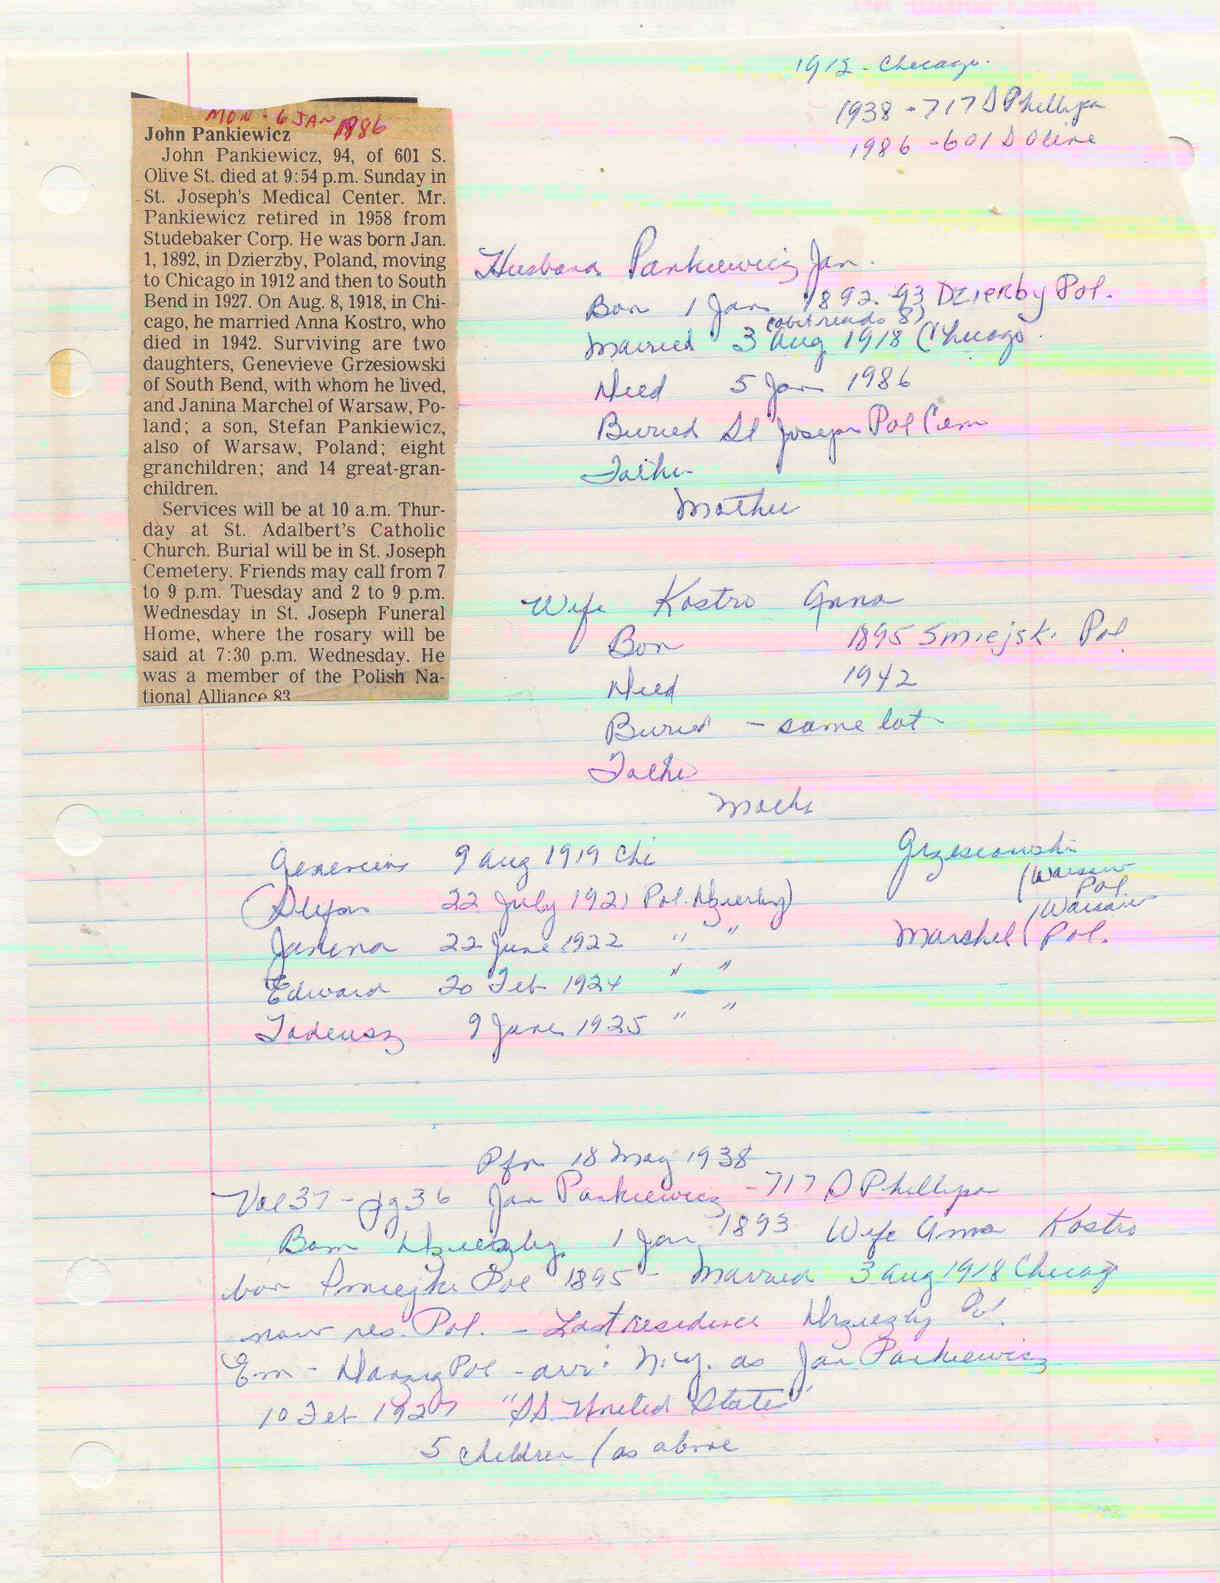 1912 - Chicago.
1938 - 717 S Phillippa
1986 - 601 S Olive
MON - 6 JAN 1986
John Pankiewicz
John Pankiewicz, 94, of 601 S.
Olive St. died at 9:54 p.m. Sunday in
St. Joseph's Medical Center. Mr.
Pankiewicz retired in 1958 from
Studebaker Corp. He was born Jan.
1, 1892, in Dzierzby, Poland, moving
to Chicago in 1912 and then to South
Bend in 1927. On Aug. 8, 1918, in Chi-
cago, he married Anna Kostro, who
died in 1942. Surviving are two
daughters, Genevieve Grzesiowski
of South Bend, with whom he lived,
and Janina Marchel of Warsaw, Po-
land; a son, Stefan Pankiewicz,
also of Warsaw, Poland; eight
granchildren; and 14 great-gran-
children.
Services will be at 10 a.m. Thur-
day at St. Adalbert's Catholic
Church. Burial will be in St. Joseph
Cemetery. Friends may call from 7
to 9 p.m. Tuesday and 2 to 9 p.m.
Wednesday in St. Joseph Funeral
Home, where the rosary will be
said at 7:30 p.m. Wednesday. He
was a member of the Polish Na-
tional Alliance 83
Husband Pankiewicz Jan.
Born 1 Jan 1892-93 Dzierby Pol.
(obit reads 8)
Married 3 Aug 1918 (Chicago.
Died 5 Jan 1986
Buried St Joseph Pol Cem
Father
Mother
Wife Kostro Anna
Born 1895 Smiejski Pol
Died 1942
Buried - same lot
Father
Mother
9 Aug 1919 Chi Grzesiowski
22 July 1921 Pol. (Warsaw Pol
Janina 22 June 1922 " " Marshel (Warsaw Pol.
Edward 20 Feb 1924 " "
Tadeusz 9 June 1925 " "
18 May 1938
Vol 37 - pg 36 Jan Pankiewicz - 717 S Phillippa
Born 1 Jan 1893 Wife Anna Kostro
born Pol 1895 - Married 3 Aug 1918 Chicag
now res. Pol. - Last residence Pol.
Em - Danzig Pol - arr: N.Y. as Jan Pankiewicz
10 Feb 1927 "SS United States"
5 children (as above